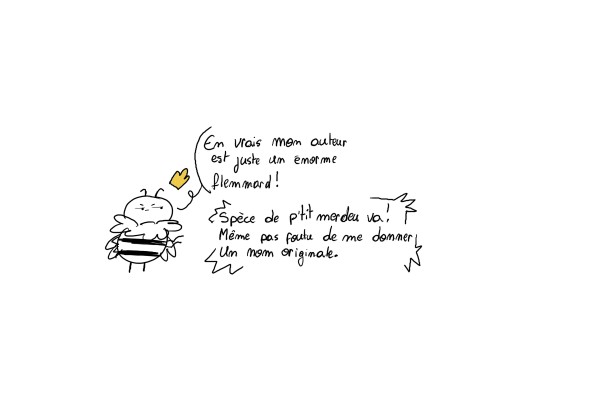 En vrais mon auteur
est juste un énorme
flemmard!
Spèce de p'tit merdeu va!
Même pas foutu de me donner
Un nom originale.